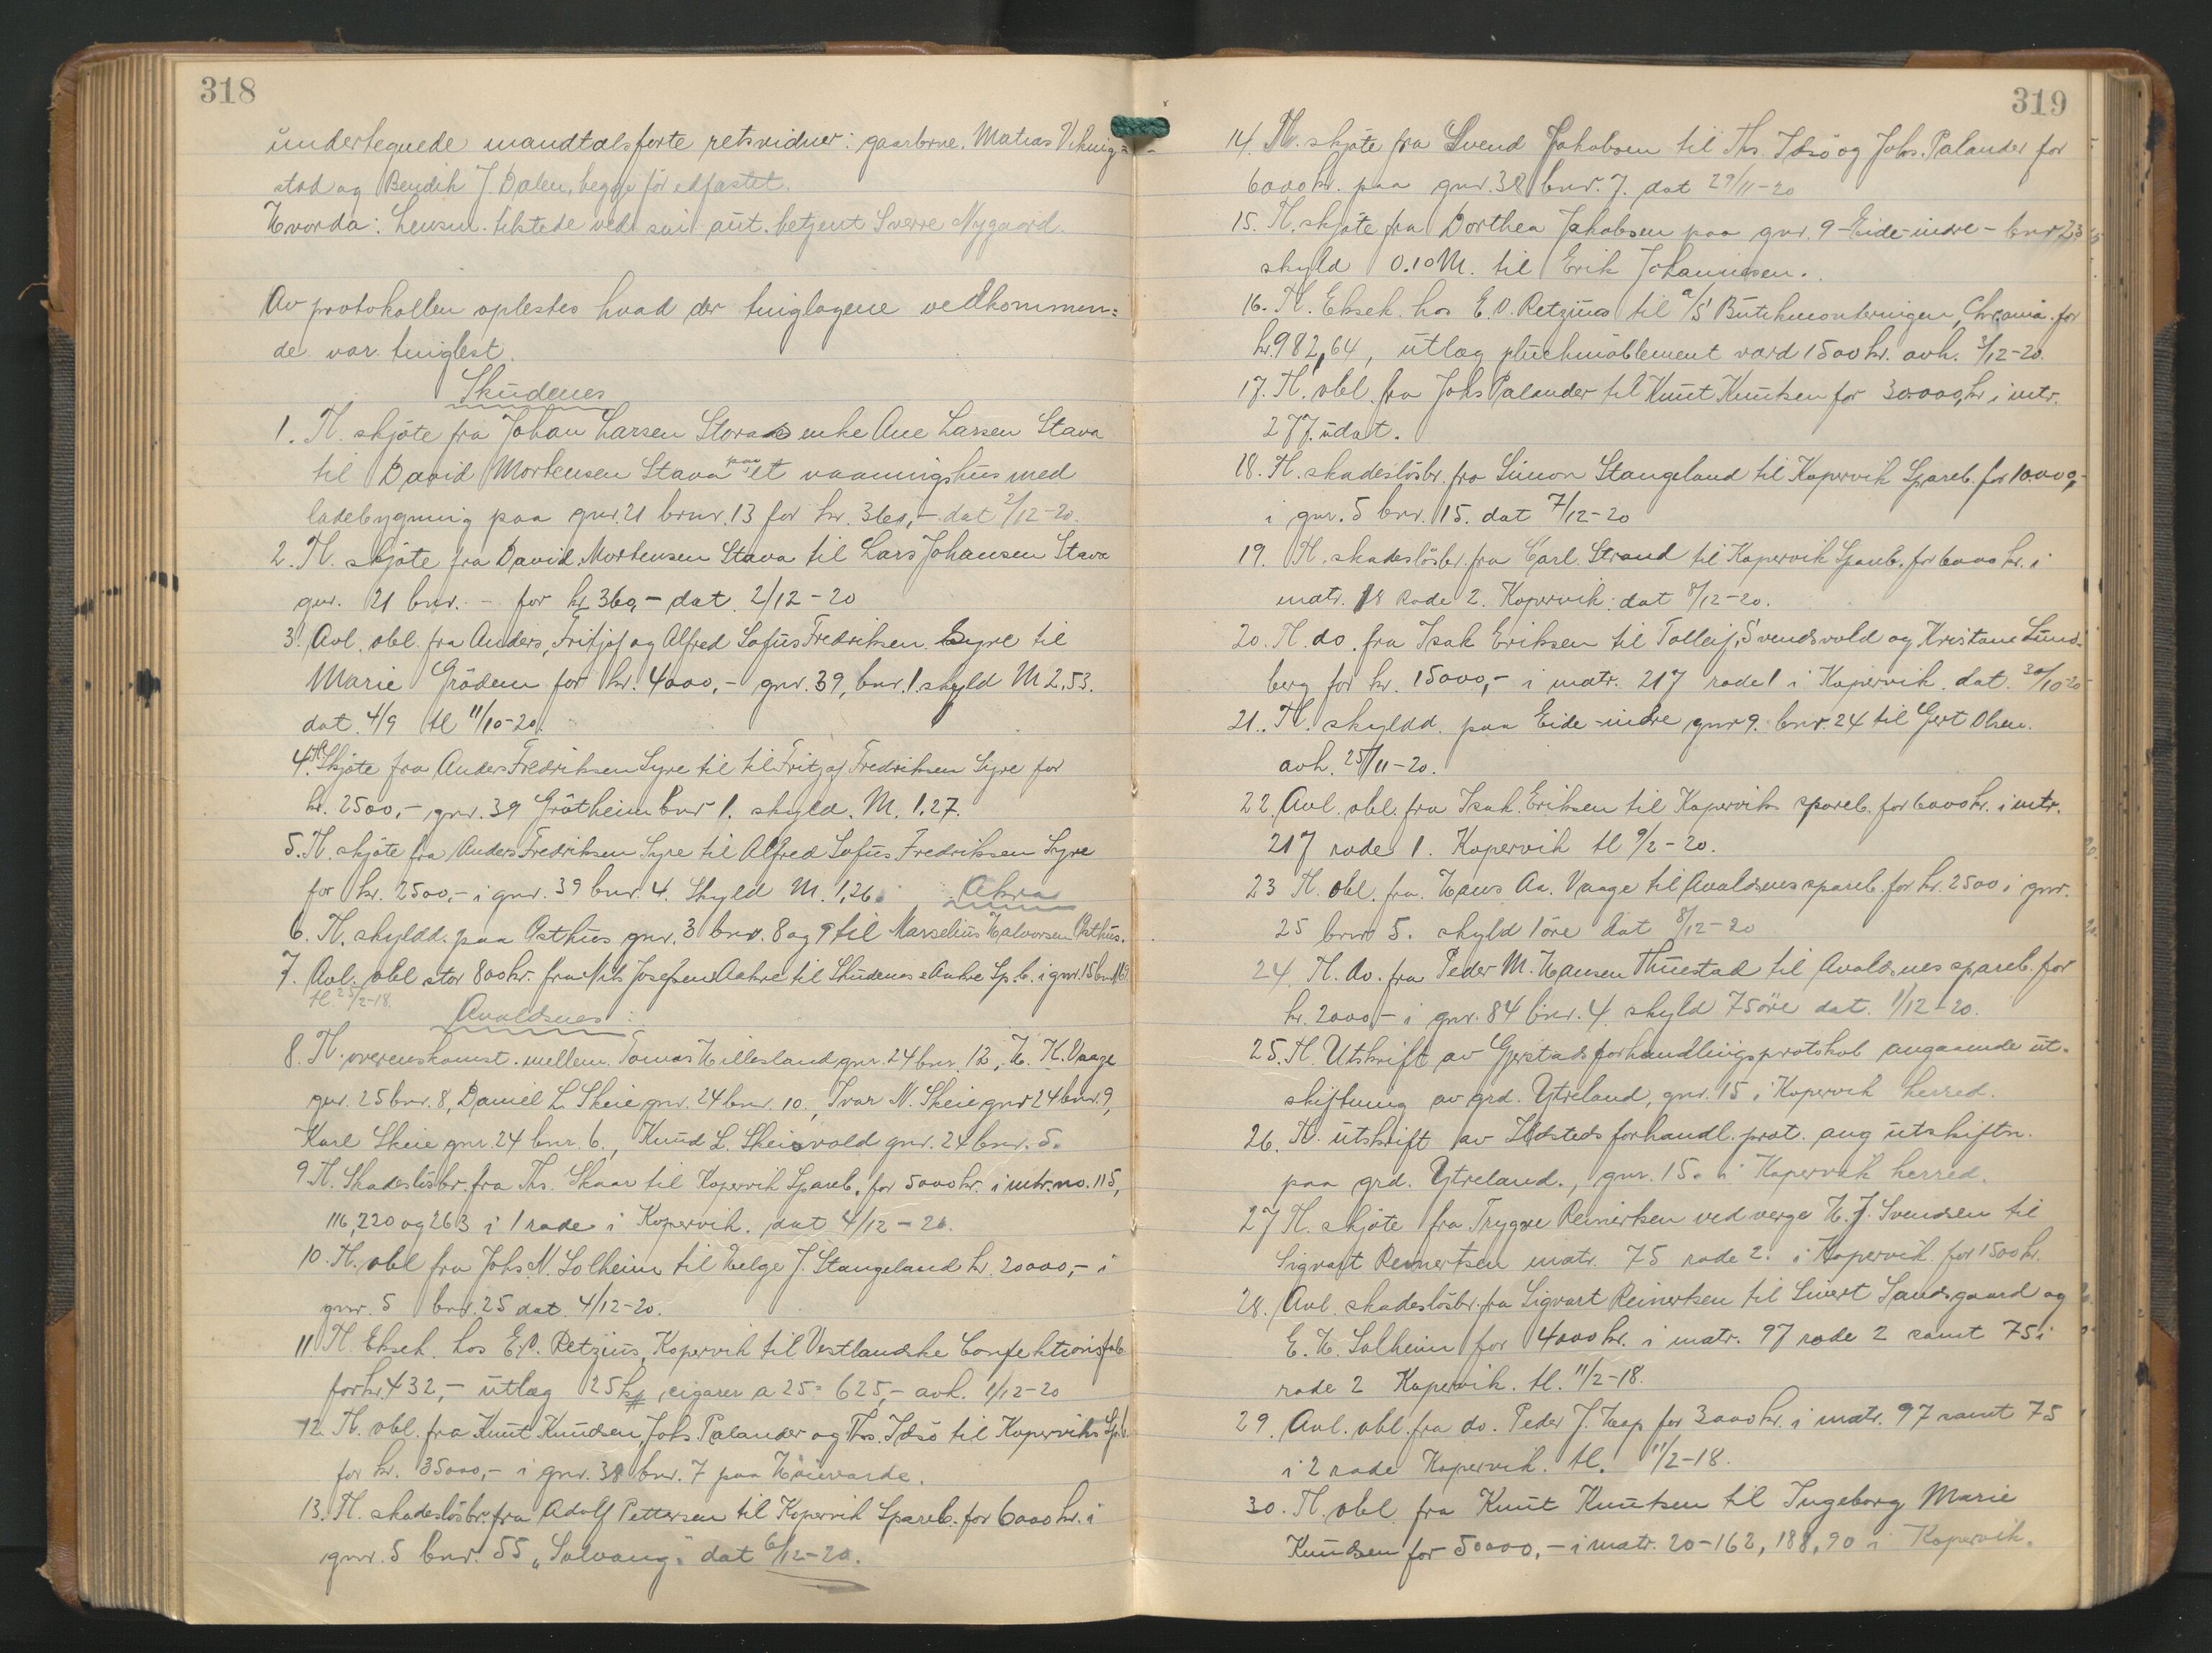 318
undertegnede mandtalsførte retsvidner: gaarbrue. Matias Viknig=
stad og Bendik J. Dalen, begge før edfæstet.
Hvorda: Lensm. tilstede ved sin aut. betjent Sverre Nygaard.
Av protokollen oplestes hvad der tinglagene vedkommen=
de var tinglest.
Skudenes
1. Tl. skjøte fra Johan Larsen Stavas enke Ane Larsen Stava
til David Mortensen Stava paa et vaaningshus med
ladebygning paa gnr. 21 brnr. 13 for kr. 360,- dat 2/12-20.
2. Tl. skjøte fra David Mortensen Stava til Lars Johansen Stava
gnr. 21 bnr. - for kr 360,- dat. 2/12-20
3. Avl. obl. fra Anders, Fritjof og Alfred Sofus Fredriksen Syre til
Marie Grödem for kr. 4000,- gnr. 39, bnr. 1. skyld M 2.53.
dat. 4/9 tl 11/10-20.
4. Tl. Skjøte fra Anders Fredriksen Syre til til Fritjof Fredriksen Syre for
kr. 2500,- gnr. 39 Grötheim bnr 1. skyld. M. 1.27.
5. Tl. skjøte fra Anders Fredriksen Syre til Alfred Sofus Fredriksen Syre
for kr. 2500,- i gnr. 39 bnr. 4. Skyld M. 1,26.
Akra
6. Tl. skyldd. paa Østhus gnr. 3 bnr. 8 og 9 til Marselius Halvorsen Østhus.
7. Avl. obl stor 800 kr. fra Nils Josefsen Aakre til Skudenes & Aakre Sp.b. i gnr. 15 bnr.
tl. 25/2-18.
Avaldsnes:
8. Tl. overenskomst mellem Tomas Hillesland gnr. 24 bnr. 12, H. K. Vaage
gnr. 25 bnr. 8, Daniel L. Skeie gnr. 24 bnr. 10., Ivar N. Skeie gnr 24 bnr. 9,
Karl Skeie gnr. 24 bnr. 6., Knud L. Skeisvold gnr. 24 bnr. 5.
9 Tl. Skadeslösbr. fra Ths. Skaar til Kopervik Spareb. for 5000 kr. i mtr. no. 115,
116, 220 og 263 i 1 rode i Kopervik. dat 4/12-20.
10. Tl. obl fra Johs N. Solheim til Helge J. Stangeland kr. 20000,- i
gnr. 5 bnr. 25 dat. 4/12-20.
11. Tl. Eksek. hos E.O. Retzius, Kopervik til Vestlandske Confektionsfab
for kr. 432,- utlæg 25 ks cigarer a 25 = 625,- avh. 1/12-20
12. Tl. obl. fra Knut Knudsen, Johs Palander og Ths. Idsö til Koperviks Sp.b.
for kr. 35000,- i gnr. 38 bnr. 7 paa Höievarde.
13. Tl. skadeslösbr. fra Adolf Pettersen til Kopervik Spareb. for 6000 kr. i
gnr. 5 bnr. 55 „Solvang" dat 6/12-20.
319
14. Tl. skjøte fra Svend Jakobsen til Ths. Idsö og Johs. Palander for
6000 kr. paa gnr. 38 bnr. 7. dat 29/11-20
15. Tl. skjøte fra Dorthea Jakobsen paa gnr. 9 - Eide-indre - bnr 23
skyld 0.10 M. til Erik Johannesen.
16. Tl. Eksek. hos E. O. Retzius til a/s Butikmonteringen, Chrania. for
kr. 982,64, utlæg plüchmöblement værd 1500 kr. avh. 3/12-20.
17. Tl. obl. fra Johs Palander til Knut Knutsen for 30.000, kr i mtr.
277. udat.
18. Tl. skadeslösbr. fra Simon Stangeland til Kopervik Spareb. for 10.000,-
i gnr. 5 bnr. 15. dat 7/12-20
19. Tl. skadeslösbr. fra Carl. Strand til Kopervik Spareb. for 6000 kr. i
matr. 18 Rode 2. Kopervik. dat 8/12-20.
20. Tl. do. fra Isak Eriksen til Tolleif Svendsvold og Kristane Lund-
berg for kr. 15000,- i matr. 217 rode 1 i Kopervik. dat. 30/10-20
21. Tl. skyldd. paa Eide-indre gnr 9. bnr. 24 til Gert Olsen.
avh. 25/11-20.
22. Avl. obl. fra Isak Eriksen til Koperviks spareb. for 6000 kr. i mtr.
217 rode 1. Kopervik tl 9/2-20.
23 Tl. obl. fra Hans Aa. Vaage til Avaldsnes spareb. for kr. 2500 i gnr.
25 bnr 5. skyld 1 öre dat 8/12-20
24. Tl. do. fra Peder M. Hansen Thuestad til Avaldsnes spareb. for
kr. 2000,- i gnr. 84 bnr. 4. skyld 75 öre dat. 1/12-20.
25. Tl. Utskrift av Gjerstads forhandlingsprotokol angaaende ut-
skiftning av grd. Ytreland, gnr. 15 i Kopervik herred.
26. Tl. utskrift av Idsteds forhandl. prot. ang utskiftn.
paa grd. Ytreland., gnr. 15. i Kopervik herred.
27 Tl. skjøte fra Trygve Reinertsen ved verge H. J. Svendsen til
Sigvart Reinertsen matr. 75 rode 2. i Kopervik for 1500 kr.
28. Avl. skadeslösbr. fra Sigvart Reinertsen til Sivert Sandsgaard og
E. H. Solheim for 4000 kr. i matr. 97 rode 2 samt 75 i
rode 2 Kopervik. tl. 11/2-18.
29. Avl. obl. fra do. Peder J. for 3000 kr. i matr. 97 samt 75
i 2 rode Kopervik. tl. 11/2-18.
30. Tl. obl. fra Knut Knutsen til Ingeborg Marie
Knudsen for 50000,- i matr. 20-162, 188, 90 i Kopervik.